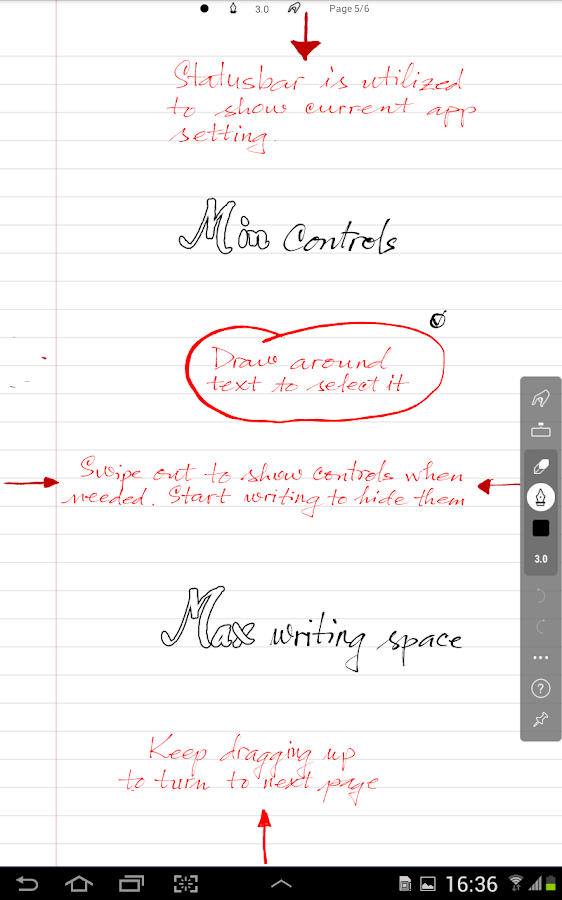 3.0 Page 5/6
Statusbar is utilized
to show current app
setting.
Min Controls
Draw around
text to select it
Swipe out to show controls when
needed. Start writing to hide them
3.0
Max writing space
Keep dragging up
to turn to next page
16:36